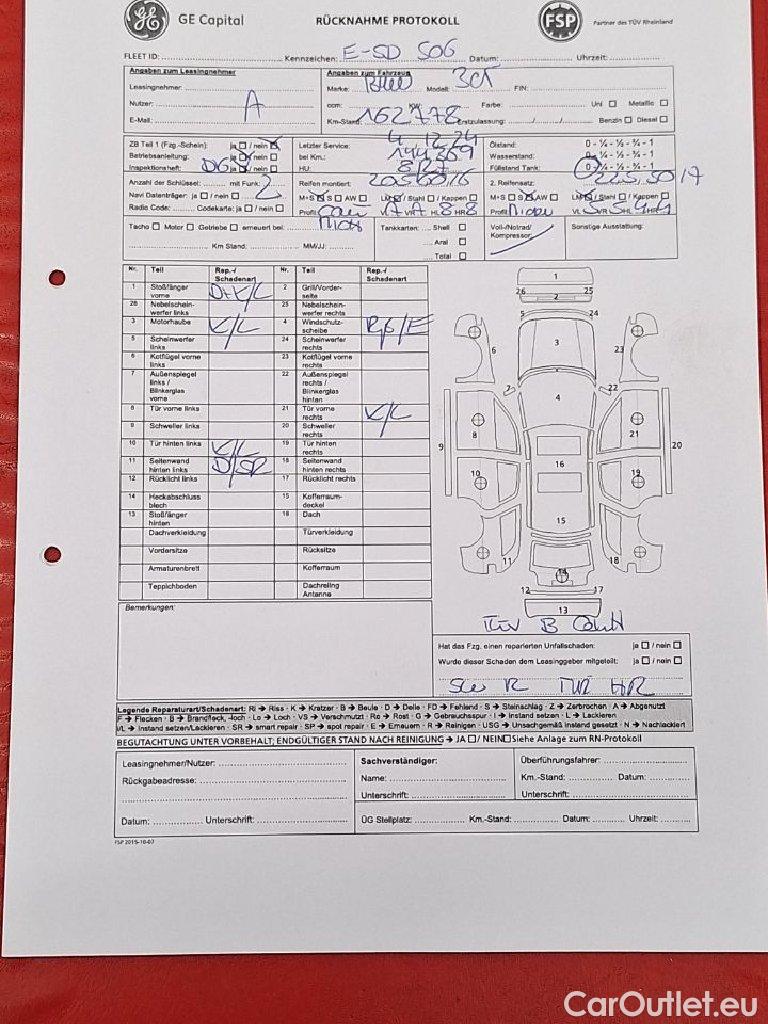 GE Capital
RÜCKNAHME PROTOKOLL
FSP
Partner des TÜV Rheinland
FLEET ID: Kennzeichen: E-SD 506 Datum: Uhrzeit:
Angaben zum Leasingnehmer
Leasingnehmer:
Nutzer: A
E-Mail:
Angaben zum Fahrzeug
Marke: Modell: FIN:
ccm: KW: Farbe: Uni Metallic
Km-Stand: 162778 Erstzulassung: Benzin Diesel
ZB Teil 1 (Fzg.-Schein): ja / nein
Betriebsanleitung: ja / nein
Inspektionsheft: DIG ja / nein
Letzter Service: 4.12.24
bei Km.: 144369
HU: 8/27
Ölstand: 0 - ¼ - ½ - ¾ - 1
Wasserstand: 0 - ¼ - ½ - ¾ - 1
Füllstand Tank: 0 - ¼ - ½ - ¾ - 1
Anzahl der Schlüssel: mit Funk: 2
Navi Datenträger: ja / nein
Radio Code: Codekarte: ja / nein
Reifen montiert: 205/60/16
M+S S AW LM / Stahl / Kappen
Profil VL 7 VR 7 HL 8 HR 8
2. Reifensatz: 225,50 17
M+S S AW LM / Stahl / Kappen
Profil VL 5 VR 5 HL 4 HR 4
Tacho Motor Getriebe erneuert bei:
Km Stand: MM/JJ:
Tankkarten: Shell
Aral
Total
Voll-/Notrad/
Kompressor:
Sonstige Ausstattung:
Nr. Teil Rep.-/ Schadenart Nr. Teil Rep.-/ Schadenart
1 Stoßfänger vorne D+K/L 2 Grill/Vorderseite
26 Nebelscheinwerfer links 25 Nebelscheinwerfer rechts
3 Motorhaube K/L 4 Windschutzscheibe
5 Scheinwerfer links 24 Scheinwerfer rechts
6 Kotflügel vorne links 23 Kotflügel vorne rechts
7 Außenspiegel links / Blinkerglas vorne 22 Außenspiegel rechts / Blinkerglas hinten
8 Tür vorne links 21 Tür vorne rechts K/L
9 Schweller links 20 Schweller rechts
10 Tür hinten links K/L 19 Tür hinten rechts
11 Seitenwand hinten links D/SP 18 Seitenwand hinten rechts
12 Rücklicht links 17 Rücklicht rechts
14 Heckabschlussblech 15 Kofferraumdeckel
13 Stoßfänger hinten 16 Dach
Dachverkleidung Türverkleidung
Vordersitze Rücksitze
Armaturenbrett Kofferraum
Teppichboden Dachreling Antenne
1
26 2 25
5 24
6 3 23
7 22
4
9 8 21 20
10 16 19
15
11 14 18
12 17
13
Bemerkungen:
Hat das Fzg. einen reparierten Unfallschaden: ja / nein
Wurde dieser Schaden dem Leasinggeber mitgeteilt: ja / nein
Legende Reparaturart/Schadenart: Ri → Riss - K → Kratzer - B → Beule - D → Delle - FD → Fehlend - S → Steinschlag - Z → Zerbrochen - A → Abgenutzt
F → Flecken - B → Brandfleck, -loch - Lo → Loch - VS → Verschmutzt - Ro → Rost - G → Gebrauchsspur - I → Instand setzen - L → Lackieren
I/L → Instand setzen/Lackieren - SR → smart repair - SP → spot repair - E → Erneuern - R → Reinigen - USG → Unsachgemäß instand gesetzt - N → Nachlackiert
BEGUTACHTUNG UNTER VORBEHALT; ENDGÜLTIGER STAND NACH REINIGUNG → JA / NEIN Siehe Anlage zum RN-Protokoll
Leasingnehmer/Nutzer:
Rückgabeadresse:
Datum: Unterschrift:
Sachverständiger:
Name:
Unterschrift:
Überführungsfahrer:
Km.-Stand: Datum:
Unterschrift:
ÜG Stellplatz: Km.-Stand: Datum: Uhrzeit:
FSP 2015-10-07
CarOutlet.eu